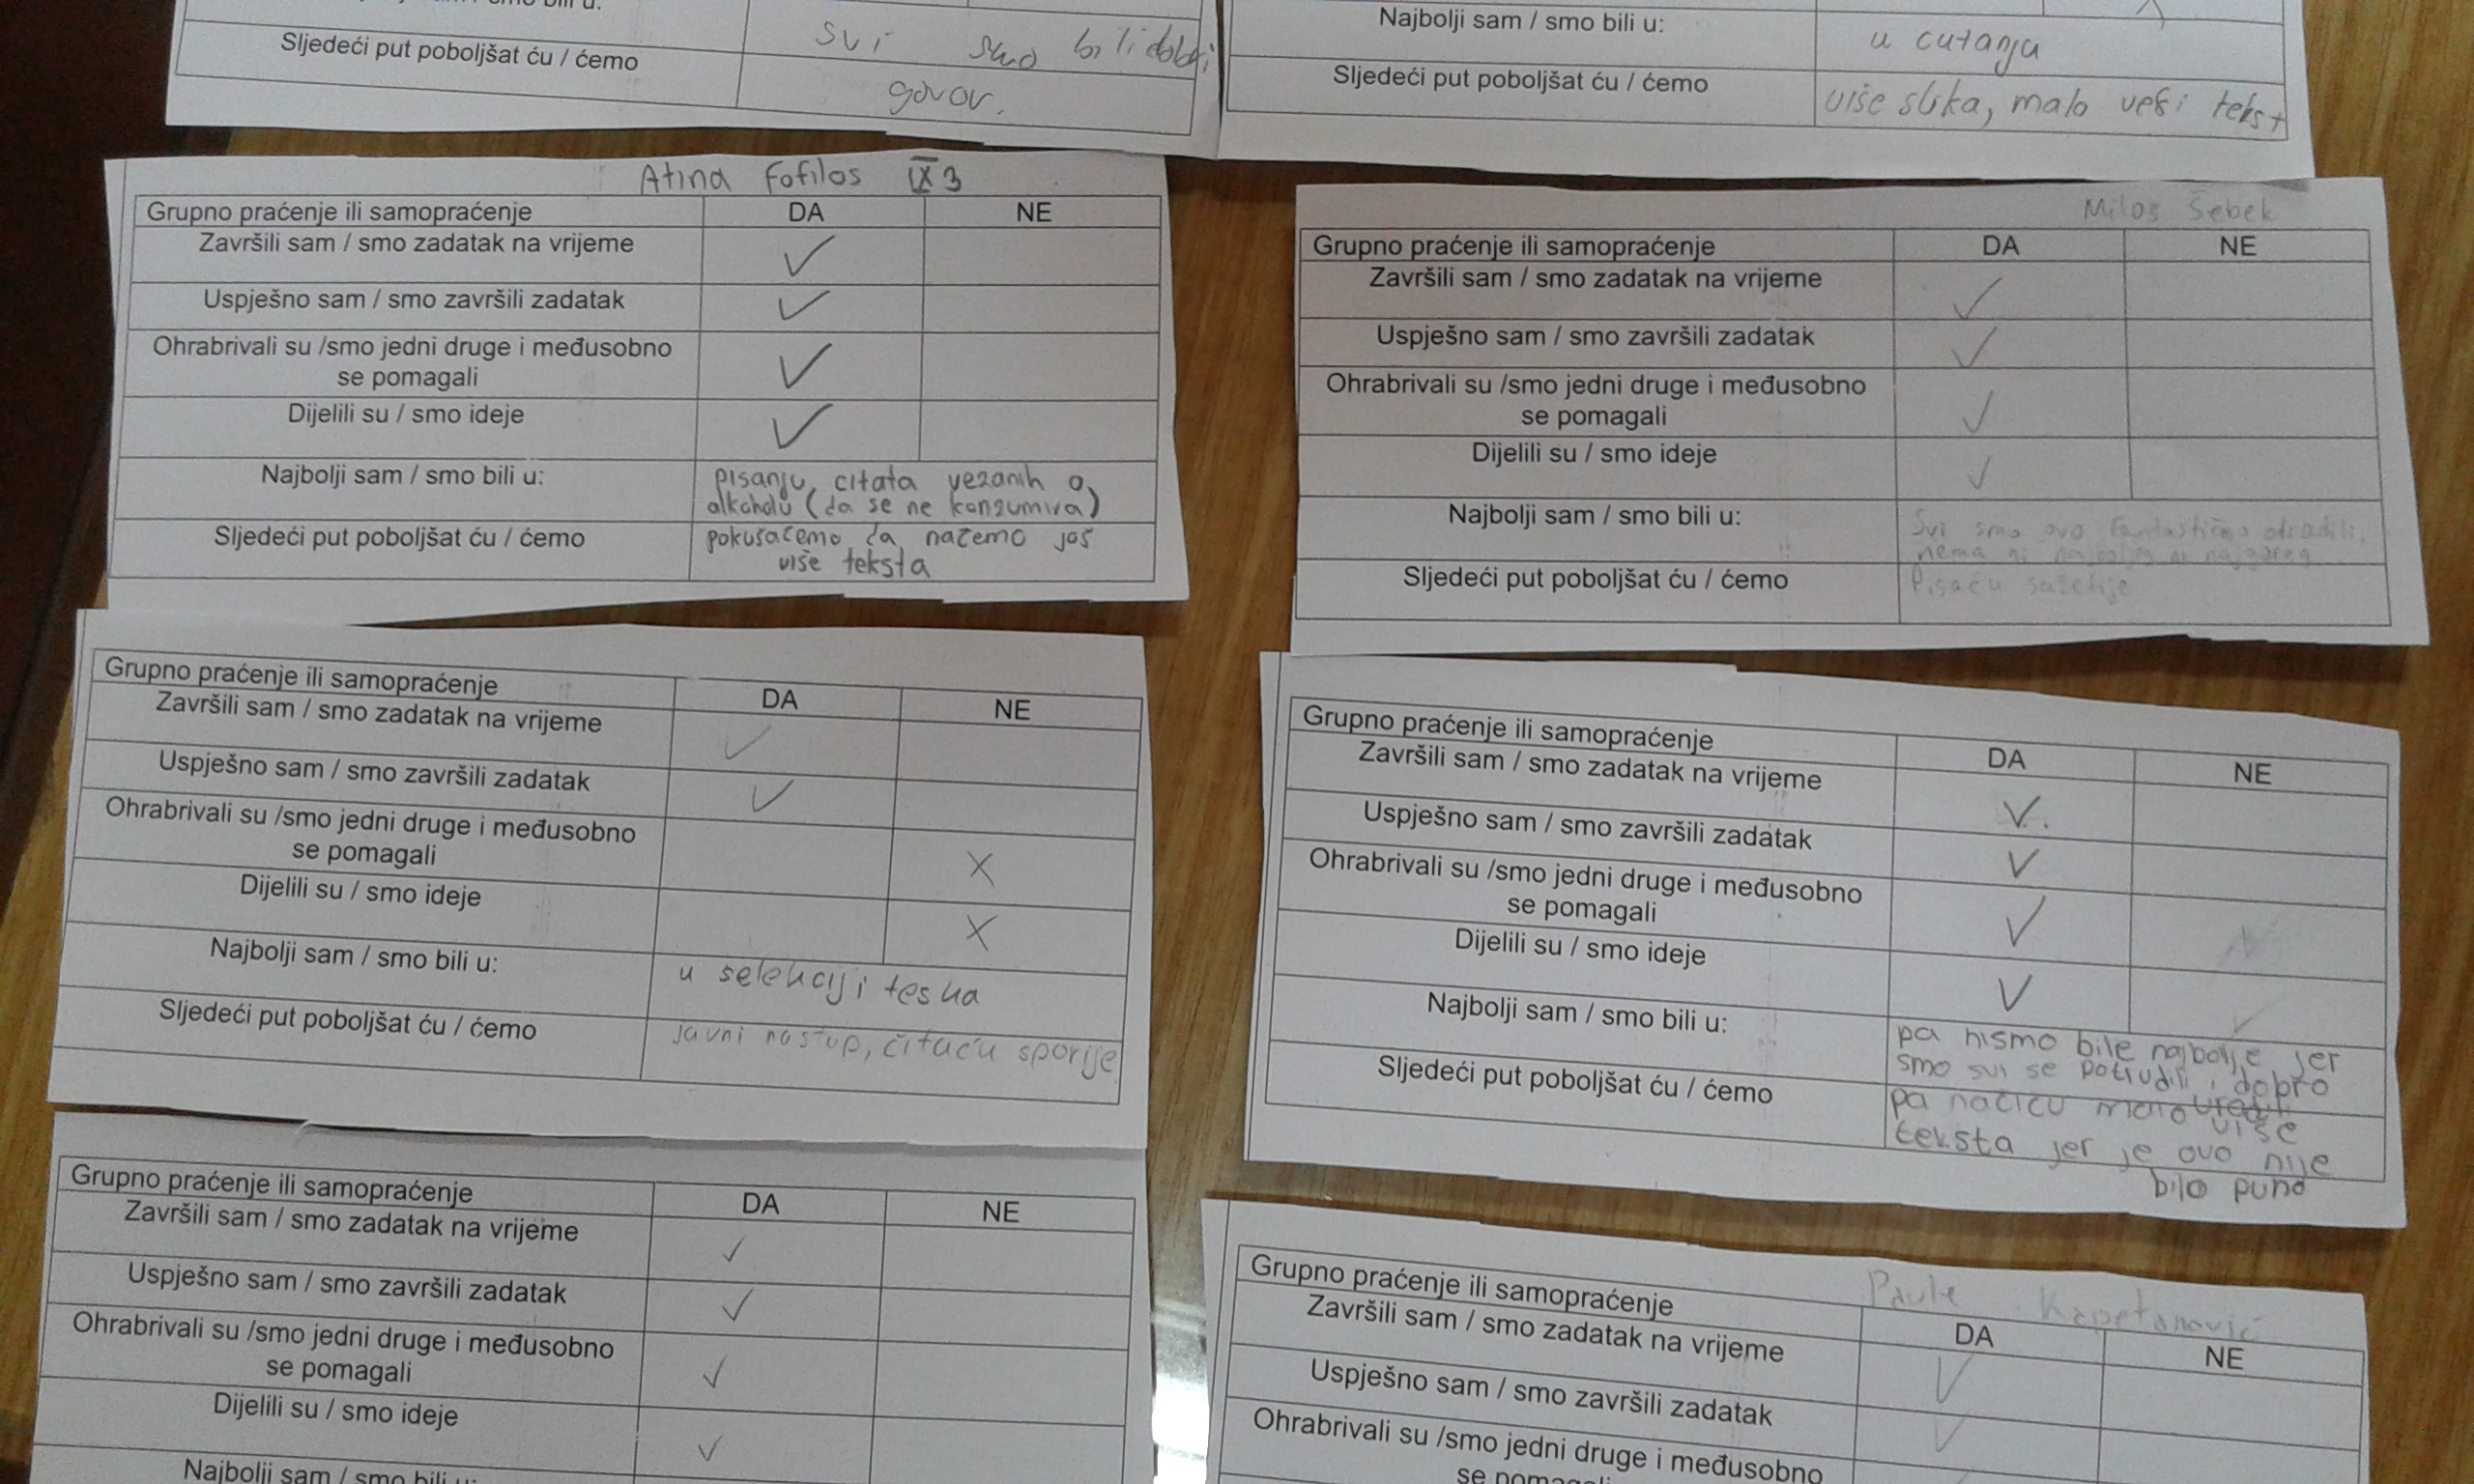 Sljedeći put poboljšat ću / ćemo
svi smo bili dobri
govor.
Najbolji sam / smo bili u:
u cutanju
Sljedeći put poboljšat ću / ćemo
više slika, malo veći tekst
Atina Fofilos IX 3
Grupno praćenje ili samopraćenje DA NE
Završili sam / smo zadatak na vrijeme ✓
Uspješno sam / smo završili zadatak ✓
Ohrabrivali su /smo jedni druge i međusobno
se pomagali ✓
Dijelili su / smo ideje ✓
Najbolji sam / smo bili u:
pisanju citata vezanih o
alkoholu (da se ne konzumira)
Sljedeći put poboljšat ću / ćemo
pokušaćemo da nađemo još
više teksta
Miloš Šebek
Grupno praćenje ili samopraćenje DA NE
Završili sam / smo zadatak na vrijeme ✓
Uspješno sam / smo završili zadatak ✓
Ohrabrivali su /smo jedni druge i međusobno
se pomagali ✓
Dijelili su / smo ideje ✓
Najbolji sam / smo bili u:
Svi smo ovo fantastično odradili,
nema ni najboljeg ni najgoreg
Sljedeći put poboljšat ću / ćemo
Pisaću sažetije
Grupno praćenje ili samopraćenje DA NE
Završili sam / smo zadatak na vrijeme ✓
Uspješno sam / smo završili zadatak ✓
Ohrabrivali su /smo jedni druge i međusobno
se pomagali X
Dijelili su / smo ideje X
Najbolji sam / smo bili u:
u selekciji teska
Sljedeći put poboljšat ću / ćemo
javni nastup, čitaću sporije
Grupno praćenje ili samopraćenje DA NE
Završili sam / smo zadatak na vrijeme ✓
Uspješno sam / smo završili zadatak ✓
Ohrabrivali su /smo jedni druge i međusobno
se pomagali ✓
Dijelili su / smo ideje ✓
Najbolji sam / smo bili u:
pa nismo bile najbolje jer
smo svi se potrudili i dobro
uradili
Sljedeći put poboljšat ću / ćemo
pa naćicu malo više
teksta jer je ovo nije
bilo puno
Grupno praćenje ili samopraćenje DA NE
Završili sam / smo zadatak na vrijeme ✓
Uspješno sam / smo završili zadatak ✓
Ohrabrivali su /smo jedni druge i međusobno
se pomagali ✓
Dijelili su / smo ideje ✓
Najbolji sam / smo bili u:
Pavle Kapetanović
Grupno praćenje ili samopraćenje DA NE
Završili sam / smo zadatak na vrijeme ✓
Uspješno sam / smo završili zadatak ✓
Ohrabrivali su /smo jedni druge i međusobno
se pomagali